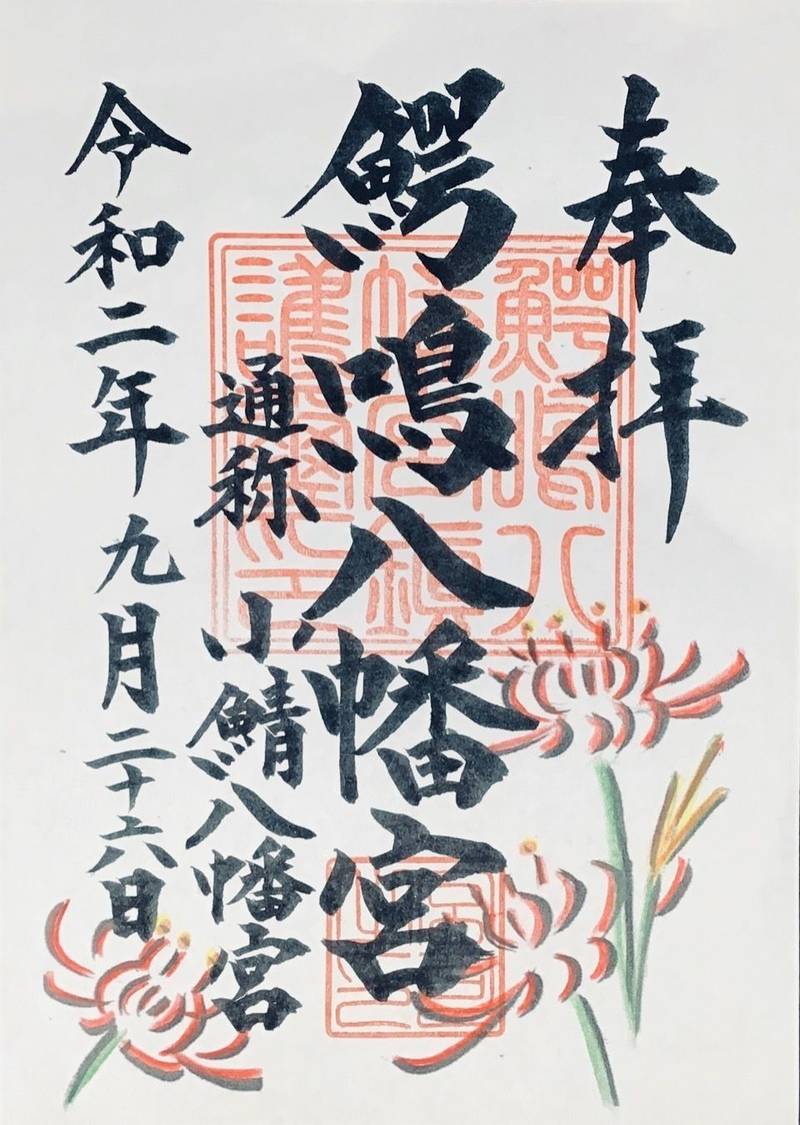 奉拝
鰐鳴八幡宮
通称 小鯖八幡宮
令和二年九月二十六日
鰐鳴八
幡宮鎮